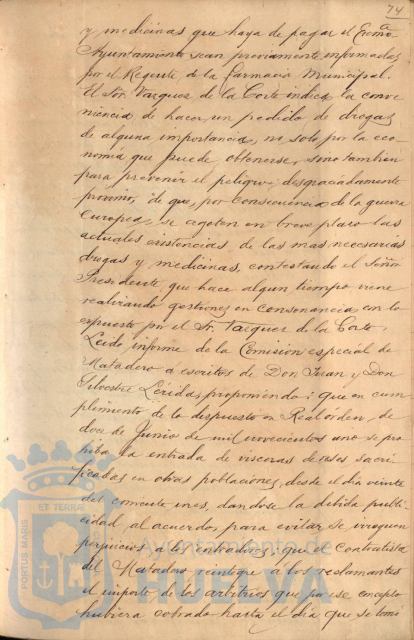 74
y medicinas que haya de pagar el Excmo.
Ayuntamiento sean previamente informadas
por el Regente de la farmacia Municipal.
El Sr. Vazquez de la Corte indica la conve
niencia de hacer un pedido de drogas
de alguna importancia, no solo por la eco
nomia que puede obtenerse, sino tambien
para prevenir el peligro, desgraciadamente
proximo, de que, por consecuencia de la guerra
Europea, se agoten en breve plazo las
actuales existencias de las mas necesarias
drogas y medicinas, contestando el Señor
Presidente que hace algun tiempo viene
realizando gestiones en consonancia con lo
expuesto por el Sr. Vazquez de la Corte.
Leido informe de la Comisión especial de
Matadero a escritos de Don Juan y Don
Silvestre Léridas, proponiendo: que en cum
plimiento de lo dispuesto en Real orden, de
doce de Junio de mil novecientos uno se pro
hiba la entrada de visceras de reses sacri
ficadas en otras poblaciones, desde el dia veinte
del corriente mes, dandose la debida publi
cidad al acuerdo, para evitar se irroguen
perjuicios a los entradores; que el Contratista
del Matadero reintegre a los reclamantes
el importe de los arbitrios que por ese concepto
hubiera cobrado hasta el dia que se tomó
PORTUS MARIS ET TERRAE
Ayuntamiento de
HUELVA